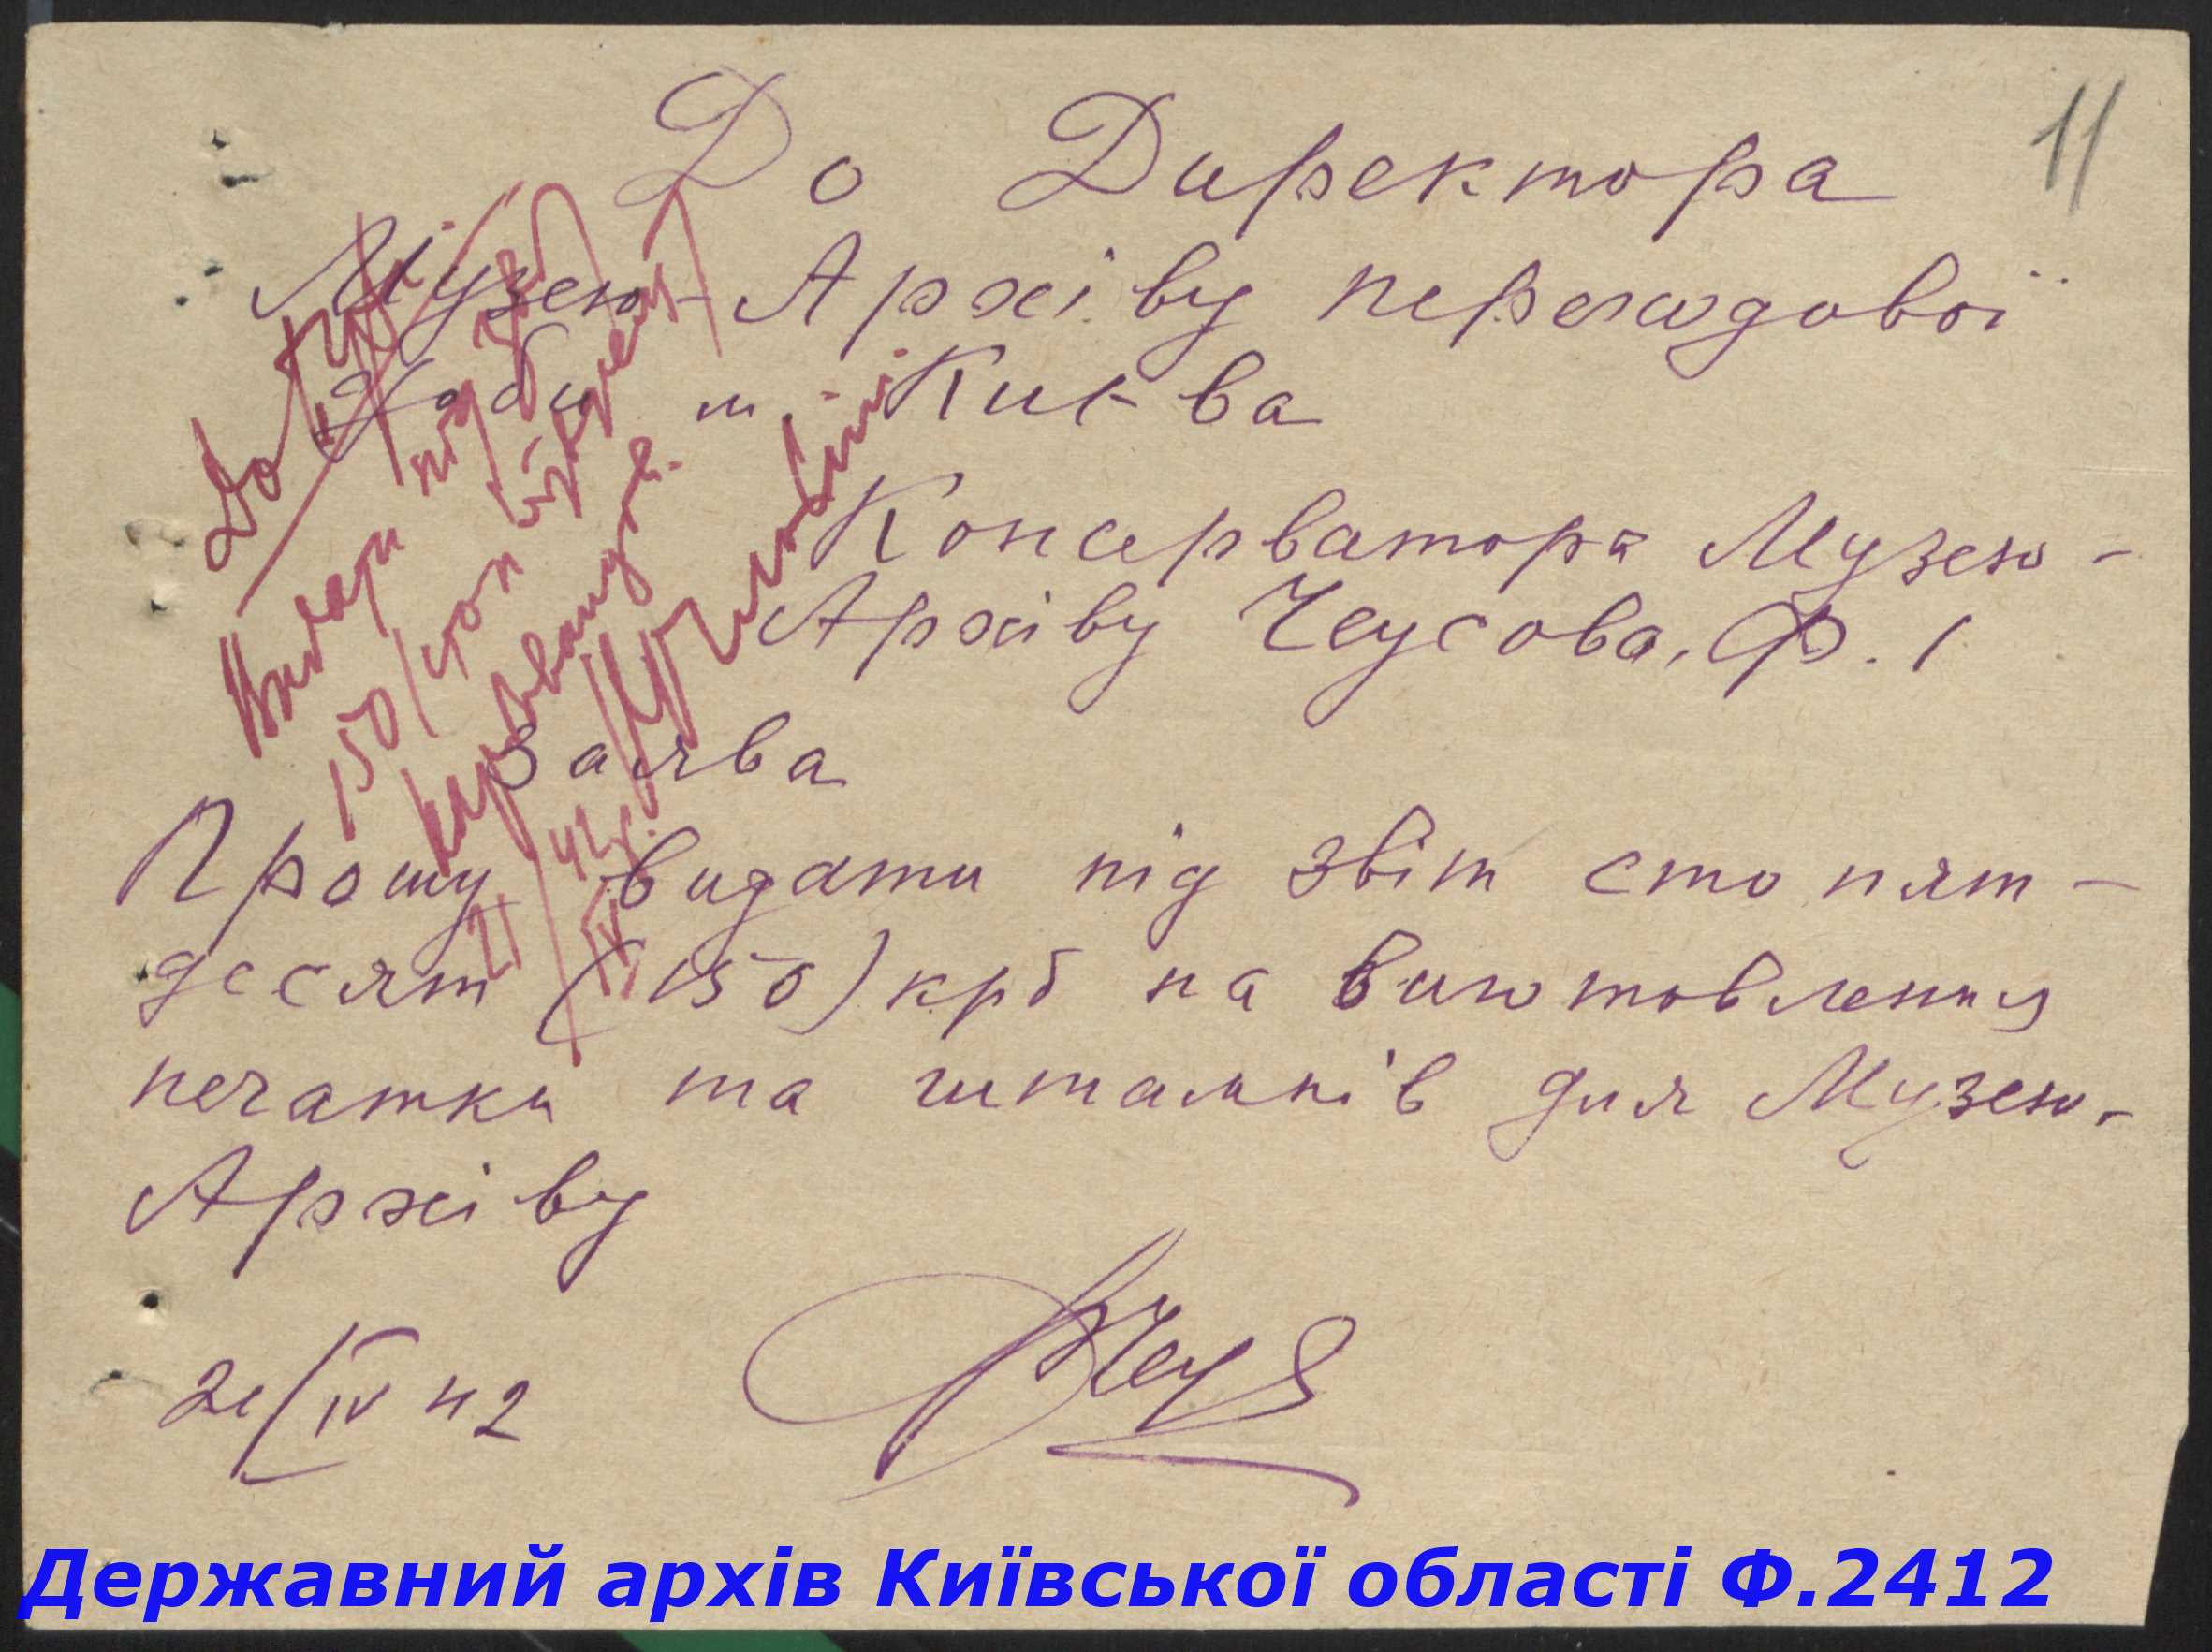 11
До Директора
Музею-Архіву переходової
доби м. Києва
Консерватора Музею-
Архіву Чеусова, Ф. І
Заява
Прошу видати під звіт сто пят-
десят (150) крб на виготовлення
печатки та штампів для Музею-
Архіву
21/IV 42
До
під звіт
150
21/IV 42
Державний архів Київської області Ф.2412